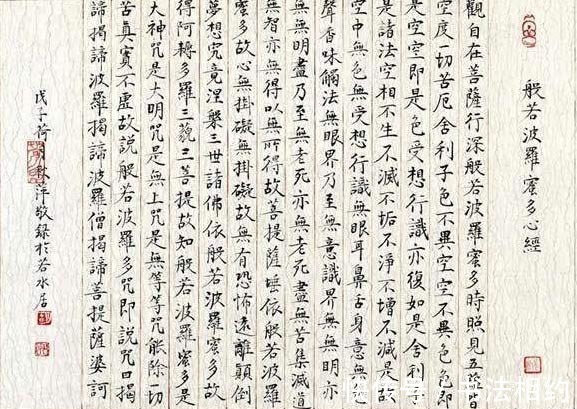 般若波羅蜜多心經
觀自在菩薩行深般若波羅蜜多時照見五蘊皆
空度一切苦厄舍利子色不異空空不異色色即
是空空即是色受想行識亦復如是舍利子
是諸法空相不生不滅不垢不淨不增不減是故
空中無色無受想行識無眼耳鼻舌身意無
聲香味觸法無眼界乃至無意識界無無明亦
無無明盡乃至無老死亦無老死盡無苦集滅道
無智亦無得以無所得故菩提薩埵依般若波羅
蜜多故心無掛礙無掛礙故無有恐怖遠離顛倒
夢想究竟涅槃三世諸佛依般若波羅蜜多故
得阿耨多羅三藐三菩提故知般若波羅蜜多是
大神咒是大明咒是無上咒是無等等咒能除一切
苦真實不虛故說般若波羅多咒即說咒曰揭
諦揭諦波羅揭諦波羅僧揭諦菩提薩婆訶
戊子荷秋萍敬錄於若水居
法相约